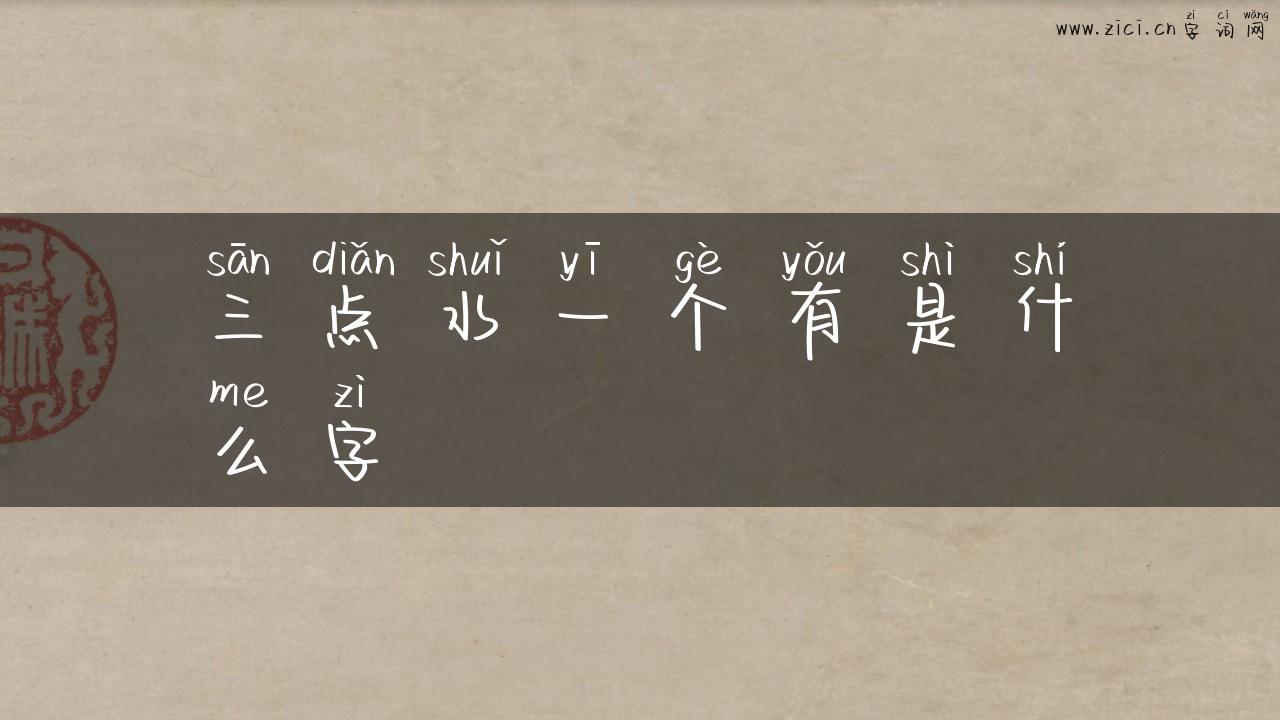 zì cí wǎng
www.zici.cn 字词网
sān diǎn shuǐ yī gè yǒu shì shí
三点水一个有是什
me zì
么字